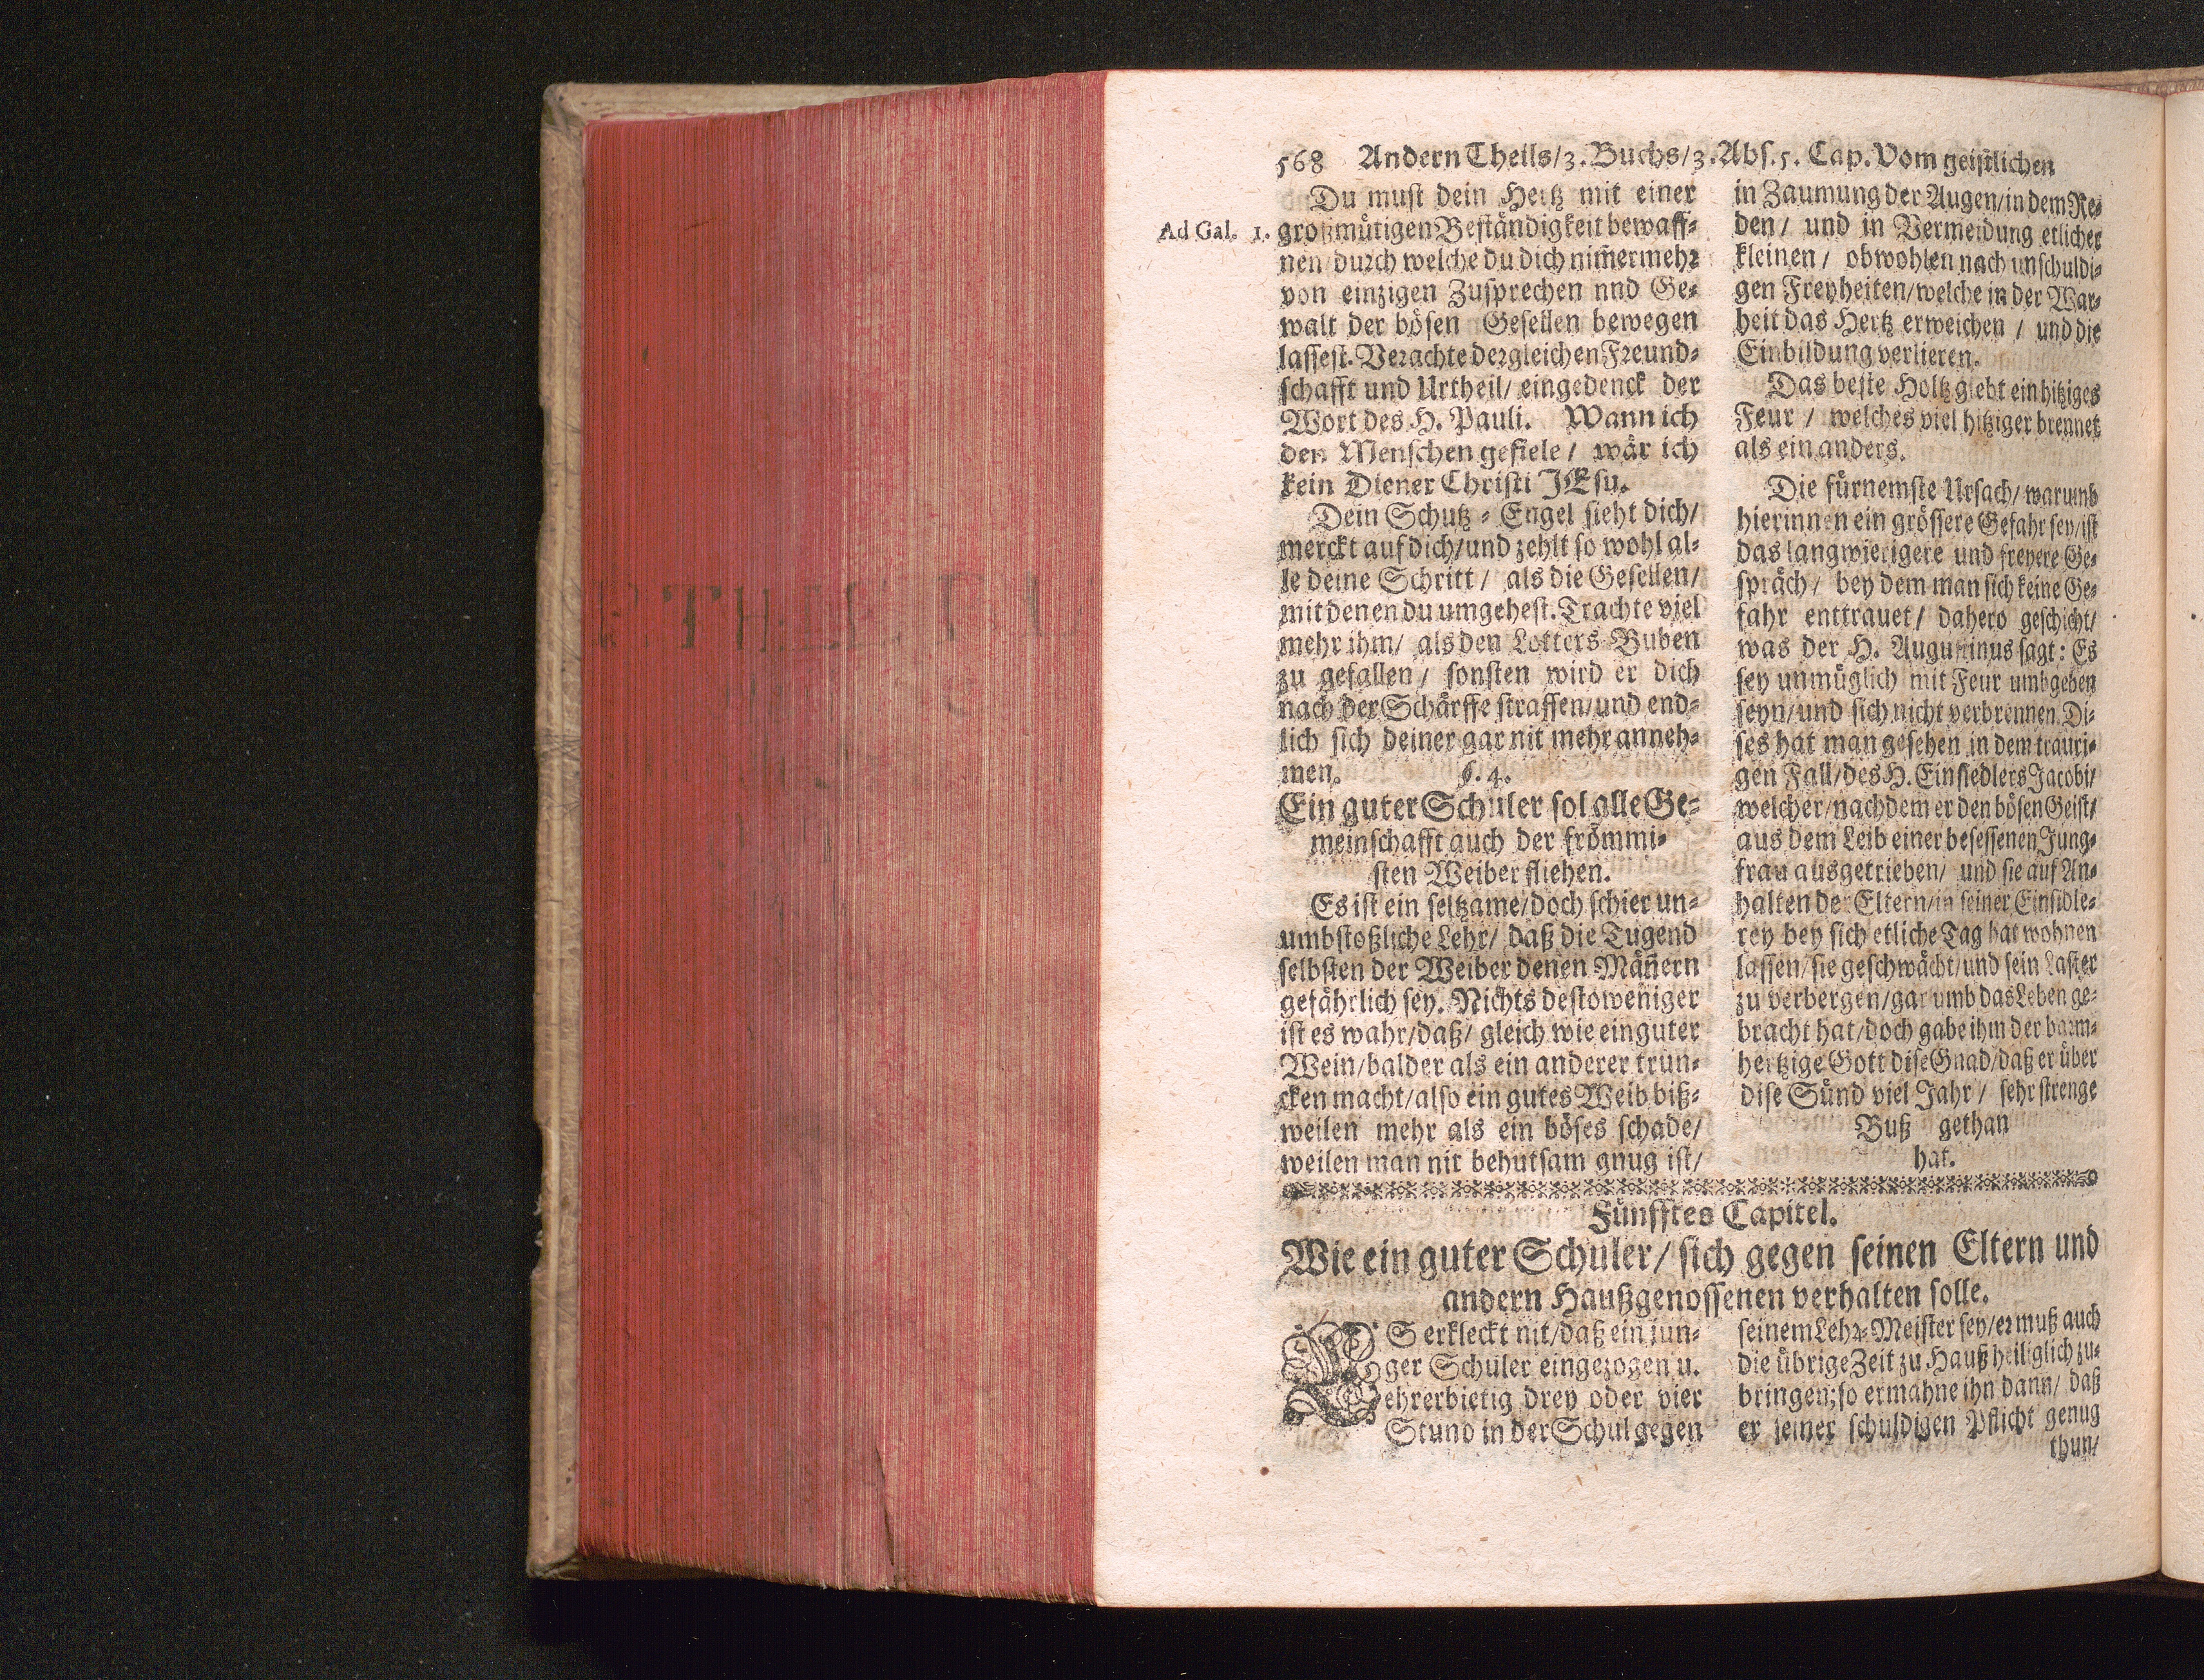 568 Andern Theils/3. Buchs/3. Abs. 5. Cap. Vom geistlichen
Ad Gal. 1.
Du must dein Hertz mit einer
großmütigen Beständigkeit bewaff-
nen durch welche du dich nim̃ermehr
von einzigen Zusprechen nnd Ge-
walt der bösen Gesellen bewegen
lassest. Verachte dergleichen Freund-
schafft und Urtheil/ eingedenck der
Wort des H. Pauli. Wann ich
den Menschen gefiele / wär ich
kein Diener Christi JEsu.
Dein Schutz-Engel sieht dich/
merckt auf dich/und zehlt so wohl al-
le deine Schritt / als die Gesellen/
mit denen du umgehest. Trachte viel
mehr ihm/ als den Lotters-Buben
zu gefallen / sonsten wird er dich
nach der Schärffe straffen/und end-
lich sich deiner gar nit mehr anneh-
men. §. 4.
Ein guter Schuler sol alle Ge-
meinschafft auch der frömmi-
sten Weiber fliehen.
Es ist ein seltzame/doch schier un-
umbstoßliche Lehr/ daß die Tugend
selbsten der Weiber denen Mäñern
gefährlich sey. Nichts destoweniger
ist es wahr/daß/ gleich wie ein guter
Wein/balder als ein anderer trun-
cken macht/also ein gutes Weib biß-
weilen mehr als ein böses schade/
weilen man nit behutsam gnug ist/
in Zaumung der Augen/in dem Re-
den / und in Vermeidung etlicher
kleinen / obwohlen nach unschuldi-
gen Freyheiten/welche in der War-
heit das Hertz erweichen / und die
Einbildung verlieren.
Das beste Holtz giebt ein hitziges
Feur / welches viel hitziger brennet
als ein anders.
Die fürnemste Ursach/ warumb
hierinnen ein grössere Gefahr sey/ist
das langwierigere und freyere Ge-
spräch / bey dem man sich keine Ge-
fahr enttrauet / dahero geschicht/
was der H. Augustinus sagt: Es
sey unmüglich mit Feur umbgeben
seyn/und sich nicht verbrennen. Di-
ses hat man gesehen in dem trauri-
gen Fall/des H. Einsiedlers Jacobi/
welcher/nachdem er den bösen Geist/
aus dem Leib einer besessenen Jung-
frau ausgetrieben/ und sie auf An-
halten der Eltern/in seiner Einsidle-
rey bey sich etliche Tag hat wohnen
lassen/sie geschwächt/und sein Laster
zu verbergen/gar umb das Leben ge-
bracht hat/doch gabe ihm der barm-
hertzige Gott dise Gnad/daß er über
dise Sünd viel Jahr / sehr strenge
Buß gethan
hat.
Fünfftes Capitel.
Wie ein guter Schuler/ sich gegen seinen Eltern und
andern Haußgenossenen verhalten solle.
ES erkleckt nit/daß ein jun-
ger Schuler eingezogen u.
ehrerbietig drey oder vier
Stund in der Schul gegen
seinem Lehr-Meister sey/er muß auch
die übrige Zeit zu Hauß heiliglich zu-
bringen; so ermahne ihn dann/ daß
er seiner schuldigen Pflicht genug
thun/